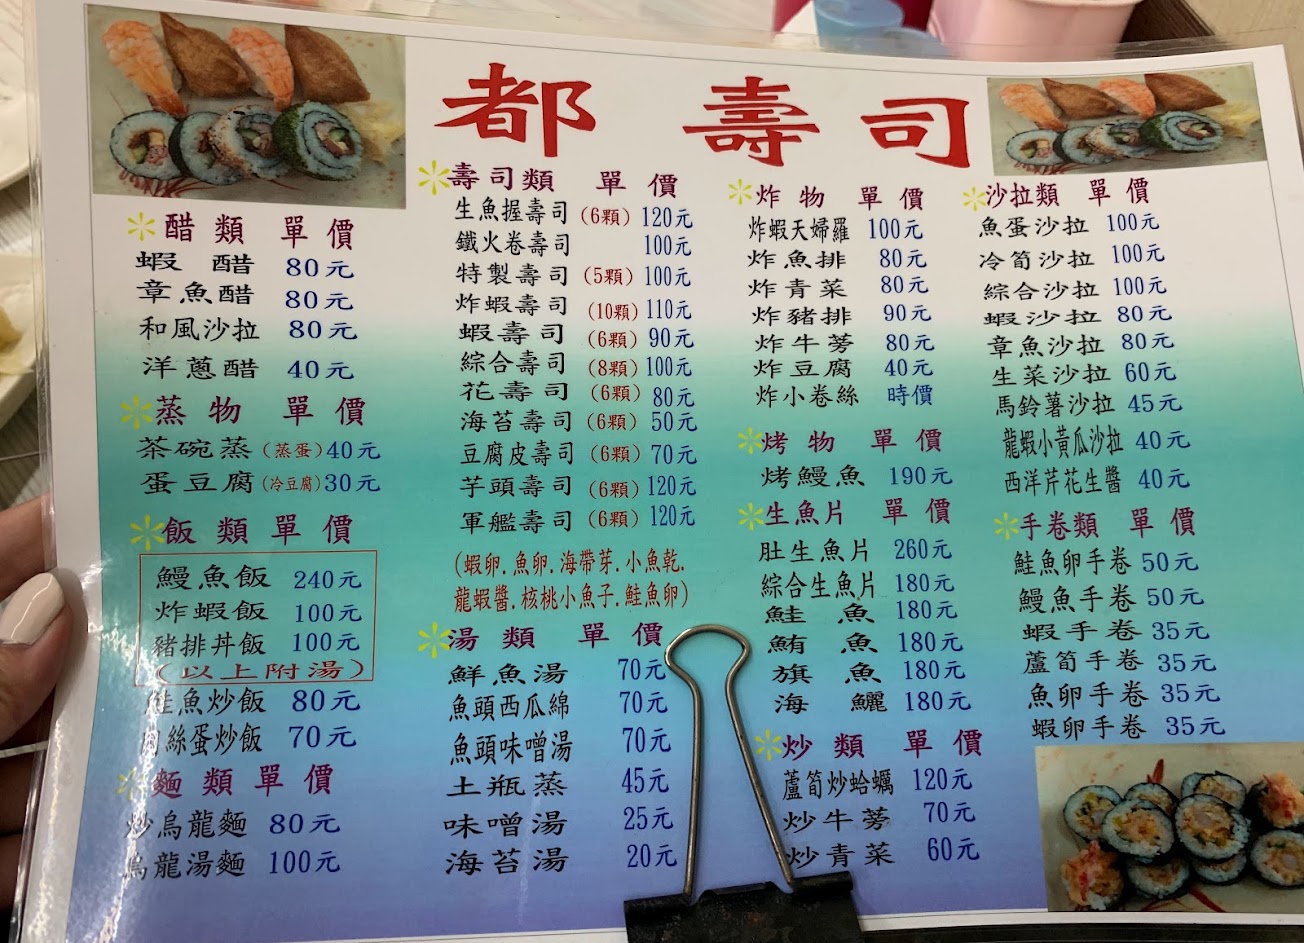 都壽司
醋類 單價
蝦醋 80元
章魚醋 80元
和風沙拉 80元
洋蔥醋 40元
蒸物 單價
茶碗蒸(蒸蛋)40元
蛋豆腐(冷豆腐)30元
飯類單價
鰻魚飯 240元
炸蝦飯 100元
豬排丼飯 100元
(以上附湯)
鮭魚炒飯 80元
絲蛋炒飯 70元
麵類單價
炒烏龍麵 80元
烏龍湯麵 100元
壽司類 單價
生魚握壽司(6顆)120元
鐵火卷壽司 100元
特製壽司(5顆)100元
炸蝦壽司(10顆)110元
蝦壽司(6顆)90元
綜合壽司(8顆)100元
花壽司(6顆)80元
海苔壽司(6顆)50元
豆腐皮壽司(6顆)70元
芋頭壽司(6顆)120元
軍艦壽司(6顆)120元
(蝦卵.魚卵.海帶芽.小魚乾.
龍蝦醬.核桃小魚子.鮭魚卵)
湯類 單價
鮮魚湯 70元
魚頭西瓜綿 70元
魚頭味噌湯 70元
土瓶蒸 45元
味噌湯 25元
海苔湯 20元
炸物 單價
炸蝦天婦羅 100元
炸魚排 80元
炸青菜 80元
炸豬排 90元
炸牛蒡 80元
炸豆腐 40元
炸小卷絲 時價
烤物 單價
烤鰻魚 190元
生魚片 單價
肚生魚片 260元
綜合生魚片 180元
鮭魚 180元
鮪魚 180元
旗魚 180元
海鱺 180元
炒類 單價
蘆筍炒蛤蠣 120元
炒牛蒡 70元
炒青菜 60元
沙拉類 單價
魚蛋沙拉 100元
冷筍沙拉 100元
綜合沙拉 100元
蝦沙拉 80元
章魚沙拉 80元
生菜沙拉 60元
馬鈴薯沙拉 45元
龍蝦小黃瓜沙拉 40元
西洋芹花生醬 40元
手卷類 單價
鮭魚卵手卷 50元
鰻魚手卷 50元
蝦手卷 35元
蘆筍手卷 35元
魚卵手卷 35元
蝦卵手卷 35元